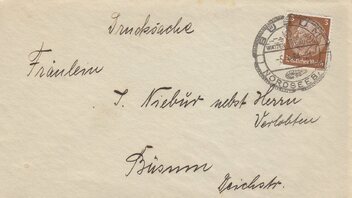 Drucksache
BÜSUM
NORDSEEB
3
Deutsches Reich
Fräulein
T. Niebür nebst Herrn
Verlobten
Büsum
Deichstr.